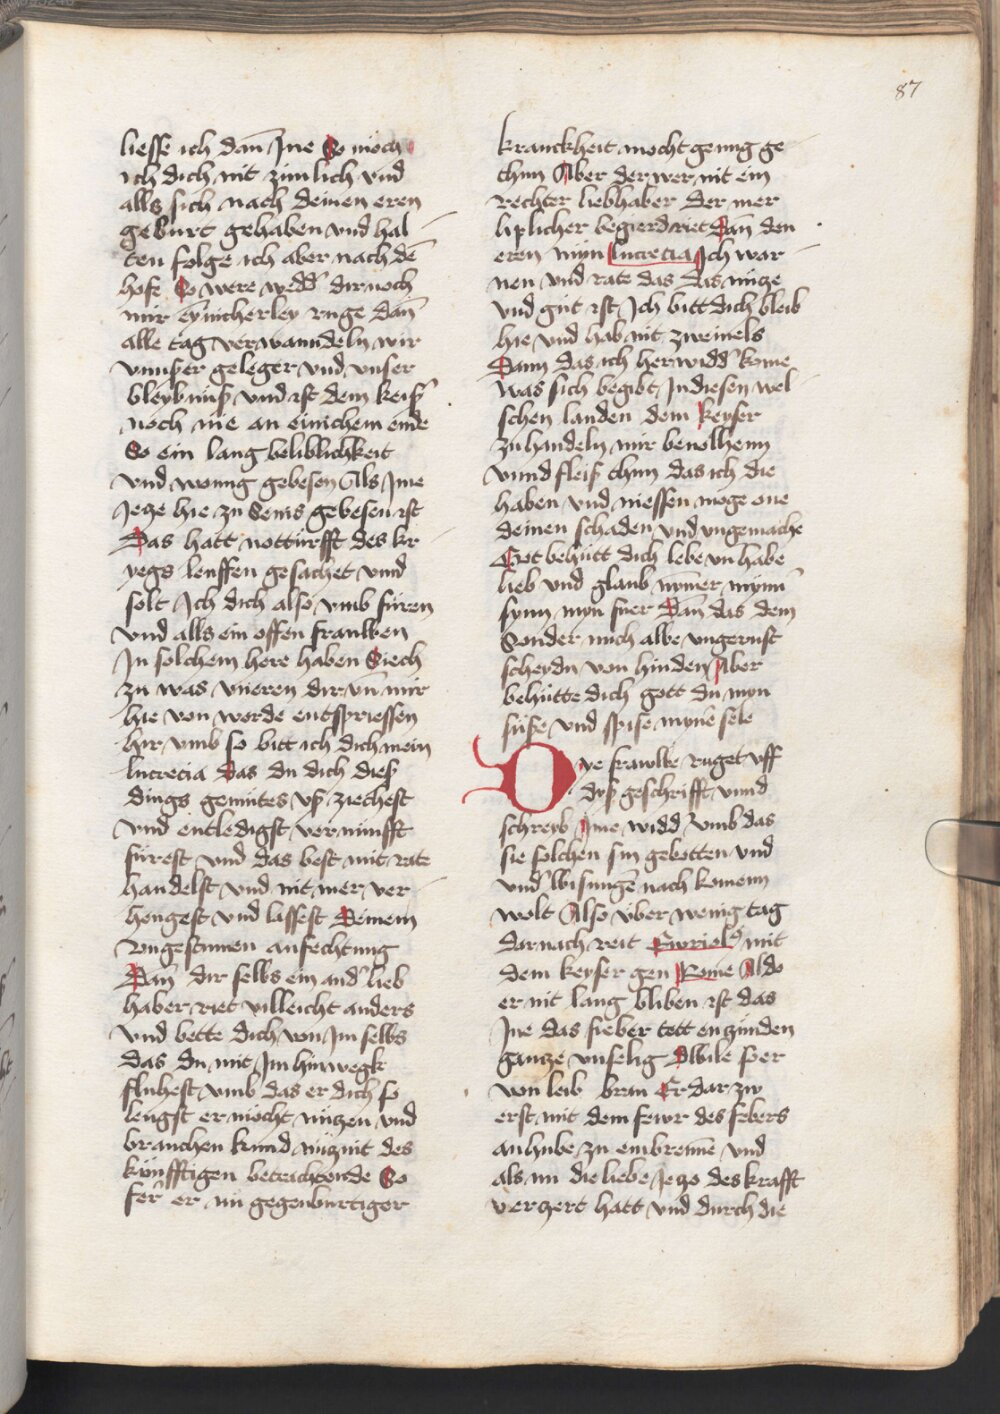 87
liesse ich dañ Ine So moch
ich dich nit zimlich vnd
alls sich nach deinen eren
geburt gehaben vnd hal
ten folge ich aber nach dē
hofe So were wedd' dir noch
mir eynicherley ruge dañ
alle tag verwanndeln wir
vnnser geleger vnd vnser
bleybnuß vnd ist dem keiß'
noch nie an einichem ende
So ein lang beliblichkeit
vnd wonung gebesen Als Ime
Ieze hie zu Senis gebesen ist
Das hatt notturfft des kr
yegs leuffen gesachet vnnd
solt Ich dich also vmb füren
vnd alls ein offen frawben
In solchem here haben Siech
zu was vneren dir vñ mir
hie von werde entspriessen
hir vmb so bitt ich dich mein
lucrecia das du dich dieß
dings gemütes vß ziechest
vnd entledigst vernunfft
fürest vnd das best mit rate
handelst vnd nit mer ver
hengest vnd lassest Deinem
vngestumen anfechtung
Dañ dir selbs ein and' lieb
haber riet villeicht anders
vnd bette dich von Im selbs
das du mit Im hinwegk
fluhest vmb das er dich so
lengst er mocht nützen vnd
brauchen kund nüznit des
künfftigen betrachtende So
fer er im gegenburtiger
kranckheit mocht genug ge
thun Aber der wer nit ein
rechter liebhaber der mer
liplicher begierd riet Dañ den
eren myn lucrecia Ich war
nen vnd rate das das nütze
vnd gut ist Ich bitt dich bleib
hie vnd hab nit zweiuels
Dann das ich herwidd' kome
was sich begibt In diesen wel
schen landen dem keyser
zu handeln mir beuolhenn
vnnd fleiß thun das ich die
haben vnd niessen moge one
deinen schaden vnd vngemache
Got behütt dich lebe vñ habe
lieb vnd glaub nymer mynn'
synn myn fuer Dañ das dem
Sonder mich albe vngernst
scheydn von hinden Aber
behütte dich gott du myn
süße vnd spise myne sele
Dye frawbe ruget vff
dyß geschrifft vnnd
schreyb Ime widd' vmb das
sie solchen sin gebotten vnd
vnd' wisungē nach komenn
wolt Also über wenig tag
darnach reit Ewriol9 mit
dem keyser gen Rome Aldo
er nit lang bliben ist das
Ine das fieber tett enzünden
gantze vnselig Wile so er
von leib bran Er dar zu
erst mit dem fewr des febers
anhube zu embrennē vnd
als nu die liebe Iezo des krafft
verzert hatt vnd durch die